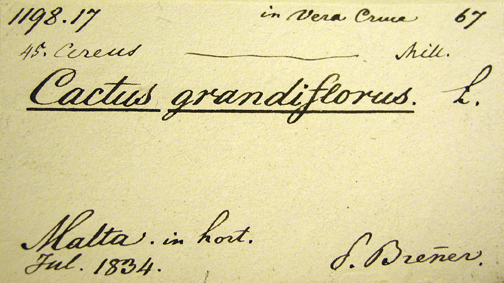 1198.17 in Vera Cruce 67
45. Cereus ———— Mill.
Cactus grandiflorus. L.
Malta. in hort.
Jul. 1834. S. Breñer.